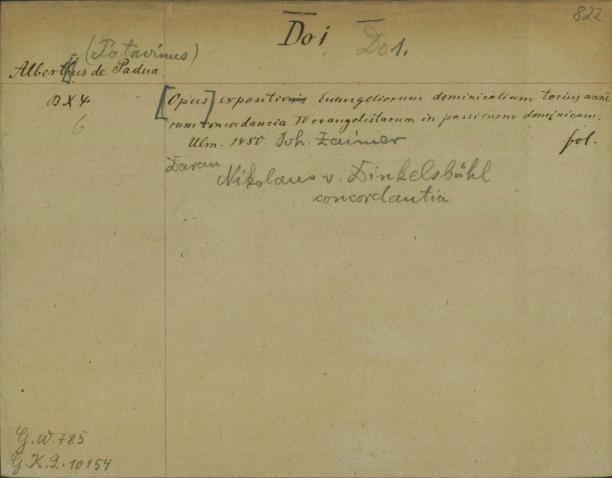 822
Do i Do 1.
(Patavinus)
Albertus de Padua.
D X 4
6
[Opus] expositionis Euangeliorum dominicalium tocius anni
cum concordancia IV evangelistarum in passionem dominicam.
Ulm. 1480 Joh. Zainer
fol.
Daran
Nikolaus v. Dinkelsbühl
concordantia
G.W. 785
G.K. 2. 10154